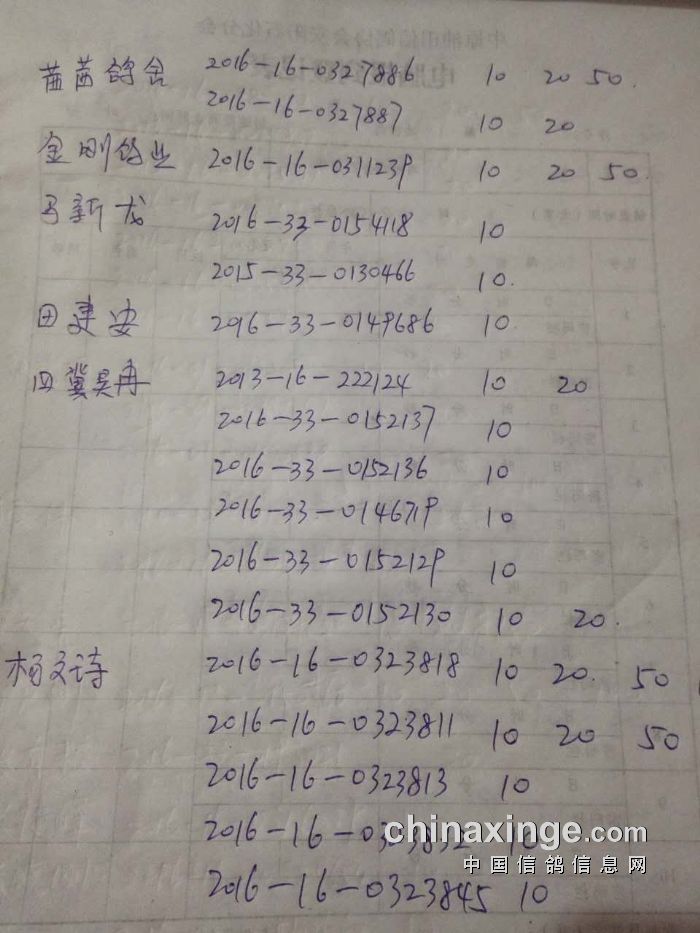 茜茜鸽舍 2016-16-0327886 10 20 50.
2016-16-0327887 10 20
金刚鸽业 2016-16-0311239 10 20 50.
马新龙 2016-33-0154118 10
2015-33-0130466 10.
田建安 2016-33-0149686 10.
冀昊冉 2013-16-222124 10 20
2016-33-0152137 10
2016-33-0152136 10
2016-33-0146719 10
2016-33-0152129 10
2016-33-0152130 10 20.
杨文诗 2016-16-0323818 10 20. 50
2016-16-0323811 10 20 50
2016-16-0323813 10
2016-16-
chinaxinge.com
中国信鸽信息网
2016-16-0323845 10